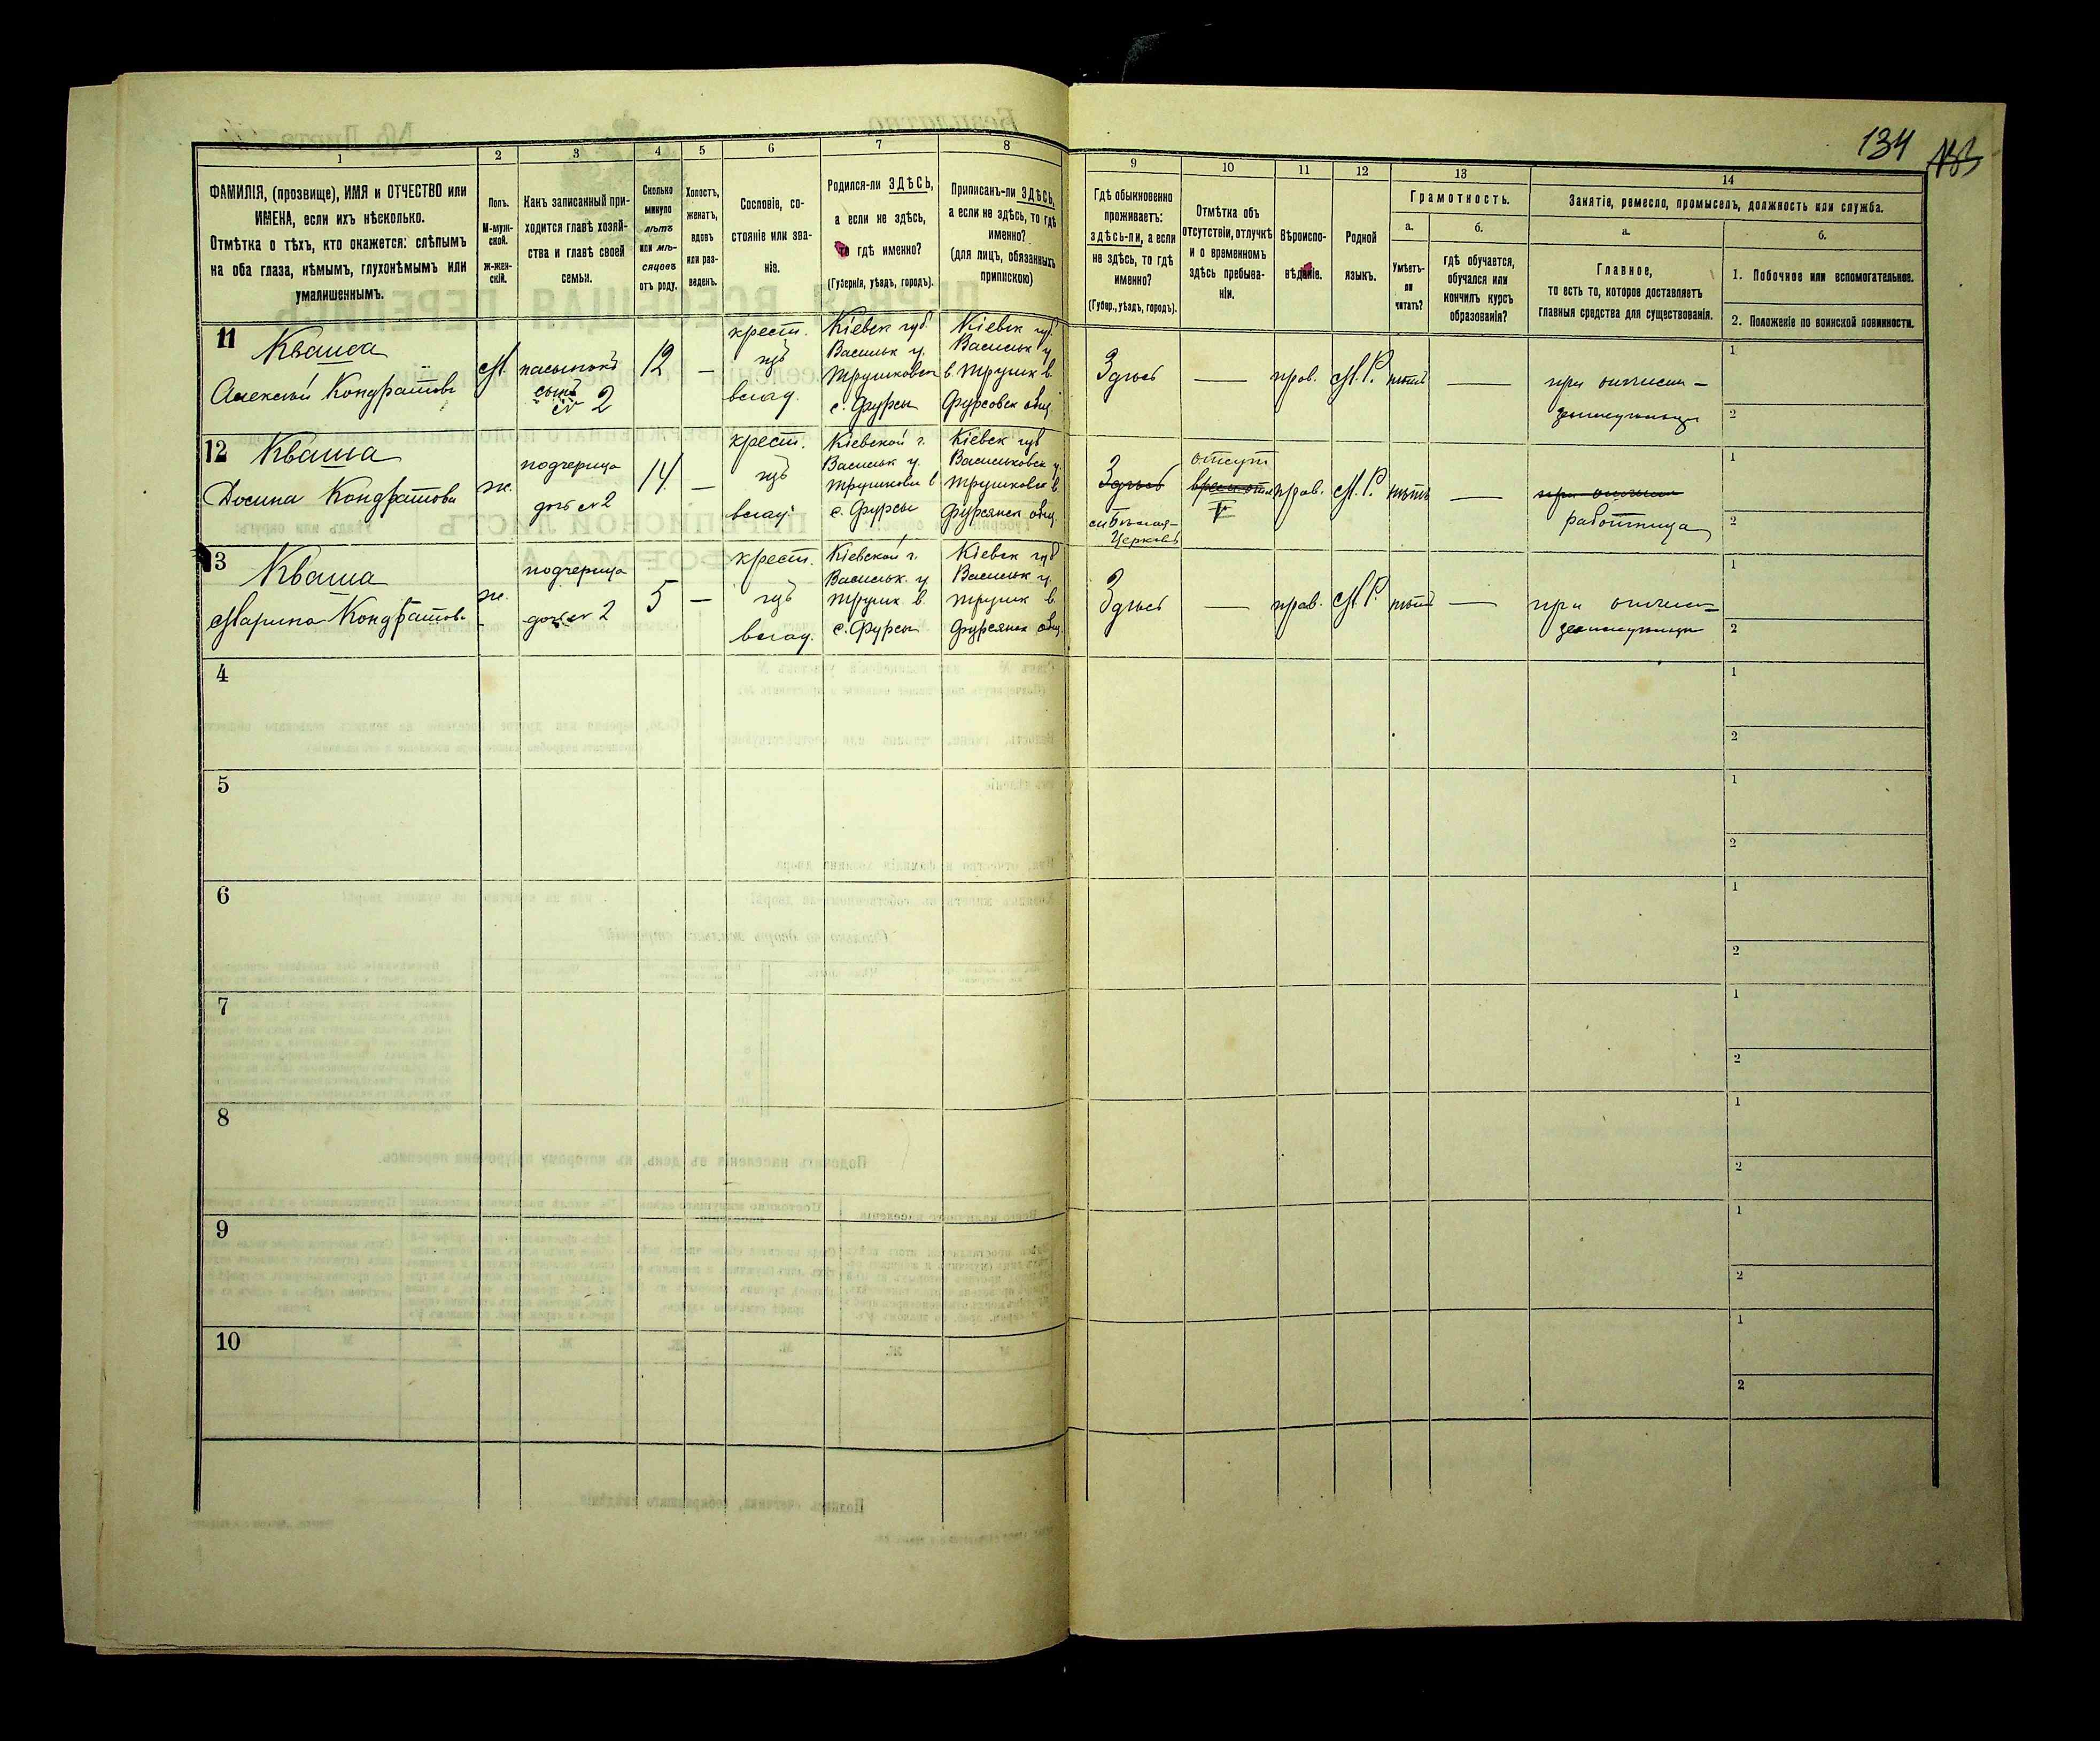 134 133
1 2 3 4 5 6 7 8 9 10 11 12 13 14
ФАМИЛІЯ, (прозвище), ИМЯ и ОТЧЕСТВО или
ИМЕНА, если ихъ нѣсколько.
Отмѣтка о тѣхъ, кто окажется: слѣпымъ
на оба глаза, нѣмымъ, глухонѣмымъ или
умалишеннымъ.
Полъ.
М-муж-
ской.
Ж-жен-
скій.
Какъ записанный при-
ходится главѣ хозяй-
ства и главѣ своей
семьи.
Сколько
минуло
лѣтъ
или мѣ-
сяцевъ
отъ роду.
Холостъ,
женатъ,
вдовъ
или раз-
веденъ.
Сословіе, со-
стояніе или зва-
ніе.
Родился-ли ЗДѢСЬ,
а если не здѣсь,
то гдѣ именно?
(Губернія, уѣздъ, городъ).
Приписанъ-ли ЗДѢСЬ,
а если не здѣсь, то гдѣ
именно?
(для лицъ, обязанныхъ
припискою)
Гдѣ обыкновенно
проживаетъ:
здѣсь-ли, а если
не здѣсь, то гдѣ
именно?
(Губер., уѣздъ, городъ).
Отмѣтка объ
отсутствіи, отлучкѣ
и о временномъ
здѣсь пребыва-
ніи.
Вѣроиспо-
вѣданіе.
Родной
языкъ.
Грамотность.
а.
Умѣетъ-
ли
читать?
б.
гдѣ обучается,
обучался или
кончилъ курсъ
образованія?
Занятіе, ремесло, промыселъ, должность или служба.
а.
Главное,
то есть то, которое доставляетъ
главныя средства для существованія.
б.
1. Побочное или вспомогательное.
2. Положеніе по воинской повинности.
11
Кваша
Алексѣй Кондратовъ
М.
пасынокъ
сынъ
№ 2
12
—
крест.
изъ
влад.
Кіевск губ.
Васильк у.
Трушковск в.
с. Фурсы
Кіевск губ
Васильк у
Трушк в.
Фурсовск общ.
Здѣсь
—
прав.
М.Р.
нѣтъ
—
при отчимѣ-
1
2
12
Кваша
Досина Кондратова
ж.
подчерица
дочь № 2
14
—
крест.
изъ
влад.
Кіевской г.
Васильк у.
Трушковск в
с. Фурсы
Кіевск губ
Васильковск у.
Трушковск в.
Фурсянск общ.
Здѣсь
Бѣлая-
Церковь
отсут
прав.
М.Р.
нѣтъ
—
при отчимѣ
работница
1
2
13
Кваша
Марина Кондратов.
ж.
подчерица
дочь № 2
5
—
крест.
изъ
влад.
Кіевской г.
Васильк. у.
Трушк. в.
с. Фурсы
Кіевск губ
Васильк у.
Трушк в.
Фурсянск общ.
Здѣсь
—
прав.
М.Р.
нѣтъ
—
при отчимѣ-
1
2
4
1
2
5
1
2
6
1
2
7
1
2
8
1
2
9
1
2
10
1
2